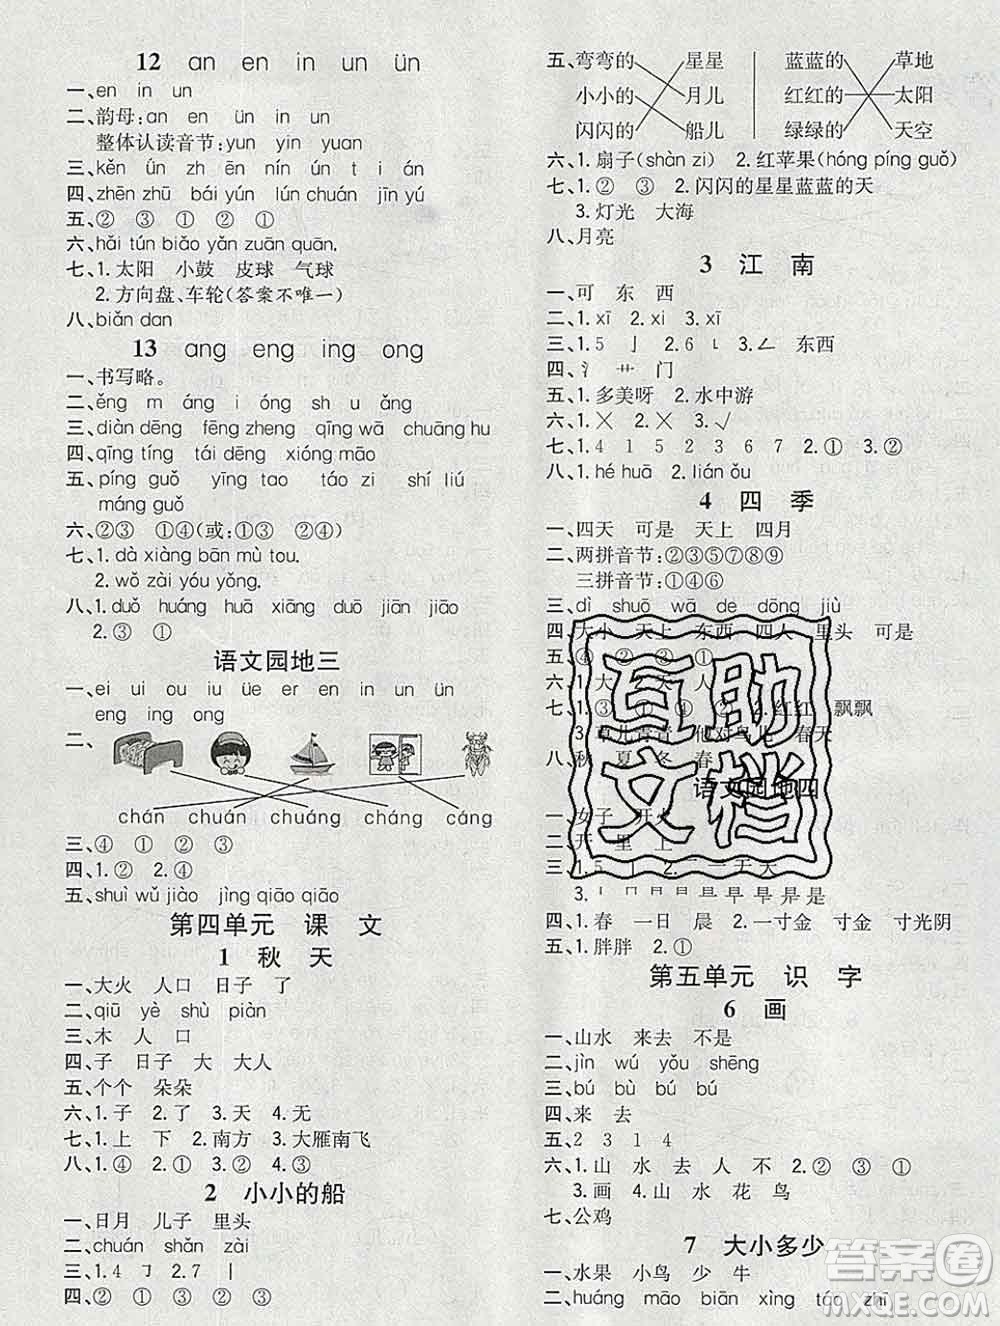 12 an en in un ün
一、en in un
二、韵母:an en ün in un
整体认读音节:yun yin yuan
三、kěn ǖn zh ēn ín ún t i án
四、zhēn zhū bái yún lún chuán jīn yú
五、② ③ ① ② ①
六、hǎi tún biǎo yǎn zuān quān.
七、1.太阳 小鼓 皮球 气球
2.方向盘、车轮(答案不唯一)
八、biǎn dan
13 ang eng ing ong
一、书写略。
二、ěng m áng i óng sh u ǎng
三、diàn dēng fēng zheng qīng wā chuāng hu
四、qīng tíng tái dēng xióng māo
五、píng guǒ yīng tao táo zi shí liú
máng guǒ
六、②③ ①④(或:①③ ②④)
七、1.dà xiàng bān mù tou.
2.wǒ zài yóu yǒng.
八、1.duǒ huáng huā xiāng duō jiān jiāo
2.③ ①
语文园地三
一、ei ui ou iu üe er en in un ün
eng ing ong
二、
chán chuán chuáng cháng cáng
三、④ ① ② ③
四、1.① ② 2.④
五、shuì wǔ jiào jìng qiāo qiāo
第四单元 课 文
1 秋 天
一、大火 人口 日子 了
二、qiū yè shù piàn
三、木 人 口
四、子 日子 大 大人
五、个个 朵朵
六、1.子 2.了 3.天 4.无
七、1.上 下 2.南方 3.大雁南飞
八、1.④ 2.① ③ ②
2 小小的船
一、日月 儿子 里头
二、chuán shǎn zài
三、1.4 ㇆ 2.7 丨
四、② ① ④ ③
五、弯弯的 星星 蓝蓝的 草地
小小的 月儿 红红的 太阳
闪闪的 船儿 绿绿的 天空
六、1.扇子(shàn zi) 2.红苹果(hóng píng guǒ)
七、1.② ③ 2.闪闪的星星蓝蓝的天
3.灯光 大海
八、月亮
3 江 南
一、可 东 西
二、1.xī 2.xi 3.xī
三、1.5 亅 2.6 ㇄ 3.𠃋 东西
四、氵 艹 门
五、1.多美呀 2.水中游
六、1.╳ 2.╳ 3.√
七、1.4 1 5 2 3 6 7 2.① 3.②
八、1.hé huā 2.lián ǒu
4 四 季
一、四天 可是 天上 四月
二、两拼音节:②③⑤⑦⑧⑨
三拼音节:①④⑥
三、dì shuō wā de dōng jiù
四、大小 天上 东西 四人 里头 可是
五、④ ② ③ ①
六、1.大 2.天 人
七、1.③ ① ④ ② 2.红红 飘飘
八、秋 夏 冬 春
语文园地四
一、女子 开火
二、开 里 上
四、1.春 一日 晨 2.一寸金 寸金 寸光阴
五、1.胖胖 2.①
第五单元 识 字
6 画
一、山水 来去 不是
二、jìn wú yǒu shēng
三、bú bù bú bú
四、来 去
五、2 3 1 4
六、1.山 水 去 人 不 2.② ③ ①
3.画 4.山 水 花 鸟
七、公鸡
7 大小多少
一、水果 小鸟 少 牛
二、huáng māo biān xìng táo zhī
互助文档
答案圈
MXQE.COM